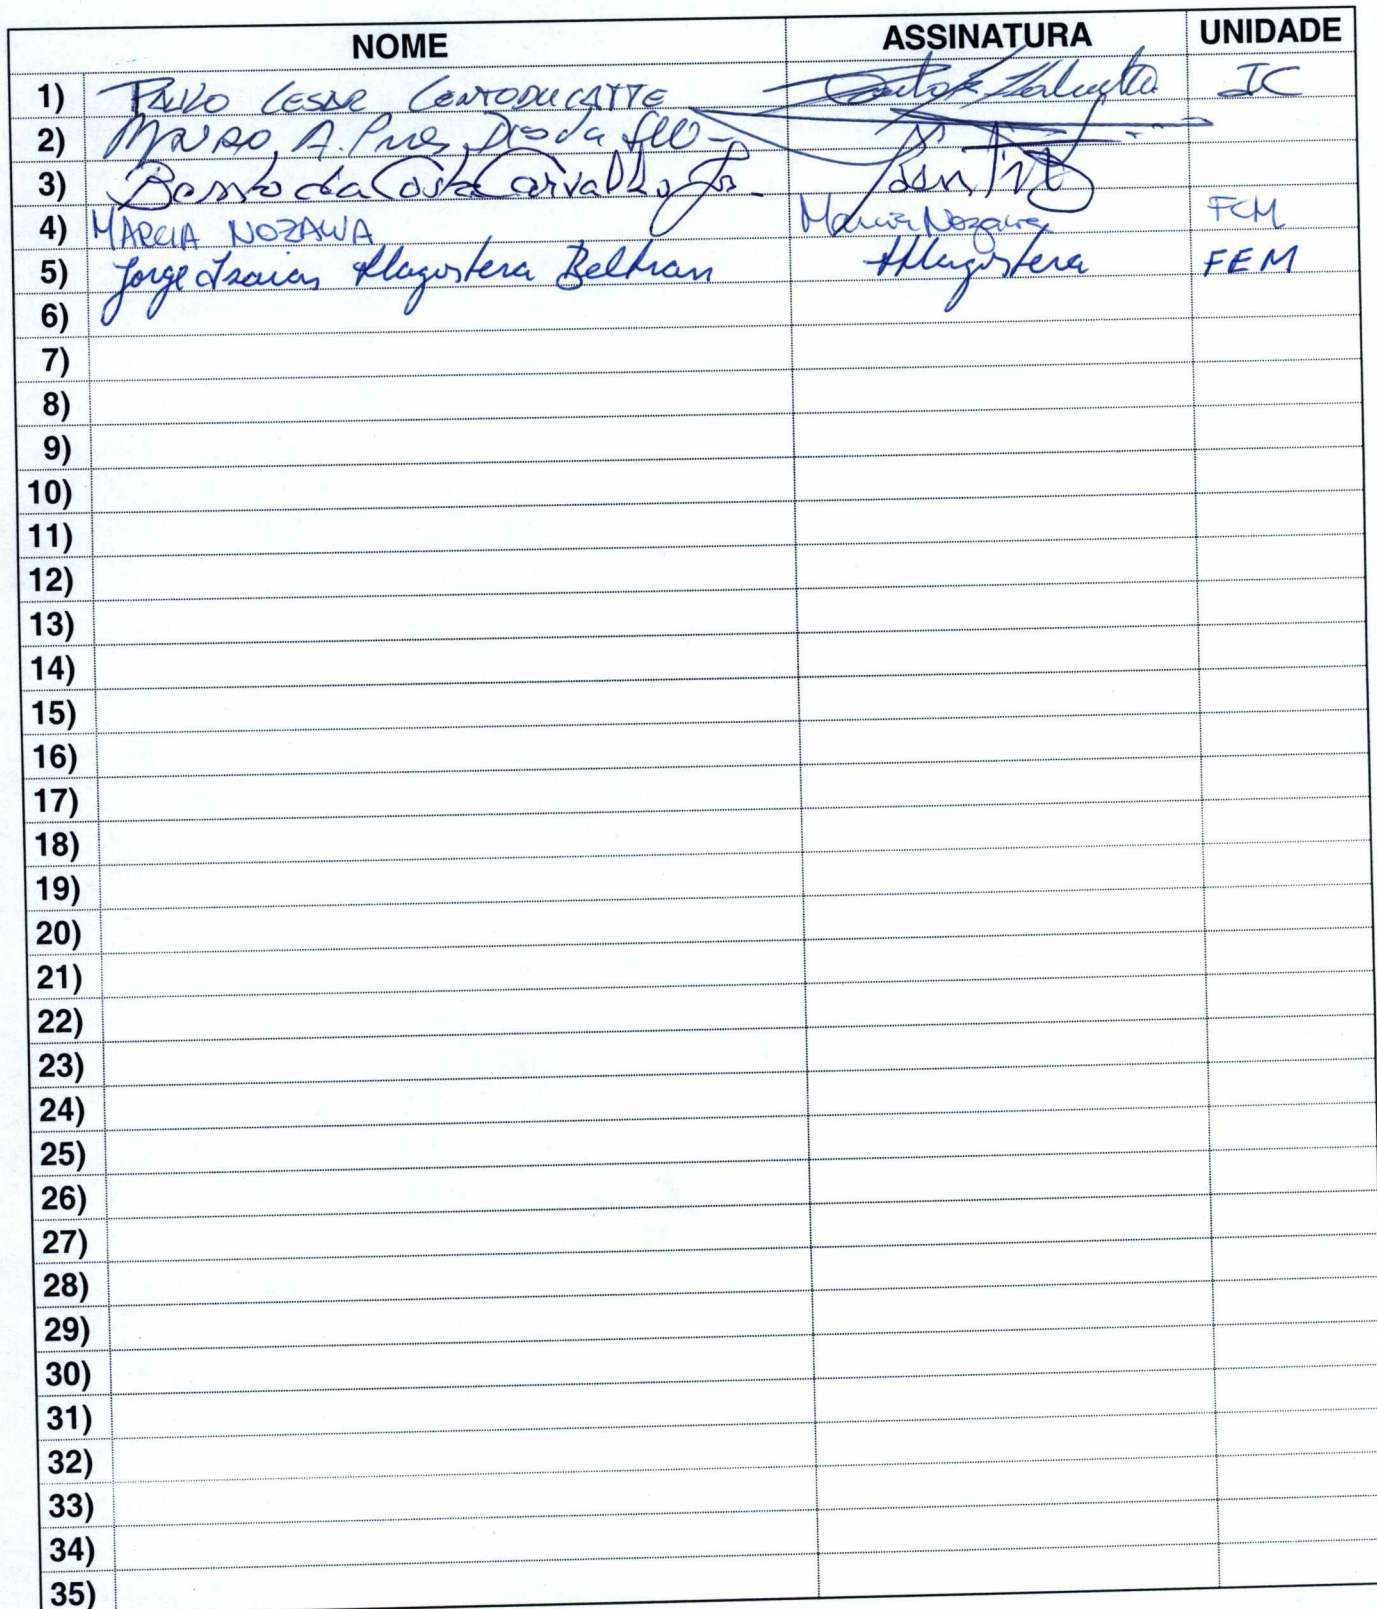 NOME ASSINATURA UNIDADE
1) PAULO CESAR CENTODUCATTE IC
2) MAURO A.
3) da Costa Carvalho Jr.
4) MARCIA NOZAWA Marcia Nozawa FCM
5) Jorge Isaias Llagostera Beltran Llagostera FEM
6)
7)
8)
9)
10)
11)
12)
13)
14)
15)
16)
17)
18)
19)
20)
21)
22)
23)
24)
25)
26)
27)
28)
29)
30)
31)
32)
33)
34)
35)